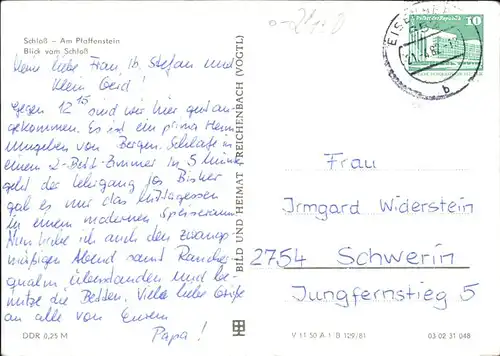 Schloß – Am Pfaffenstein
Blick vom Schloß
Meine liebe Frau, lb. Stefan und
Klein Gerd!
Gegen 12 15 sind wir hier gut an-
gekommen. Es ist ein prima Heim
umgeben von Bergen. Schlafe in
einem 2-Bett-Zimmer in 5 Minuten
geht der Lehrgang los. Bisher
gab es nur das Mittagessen
in einem modernen Speiseraum
Nun habe ich auch den zwangs-
mäßigen Abend samt Raucher-
qualm überstanden und be-
nutze die Betten. Viele liebe Grüße
an alle von Eurem
Papa!
DDR 0,25 M
BILD UND HEIMAT REICHENBACH (VOGTL)
10
b
Frau
Irmgard Widerstein
2754 Schwerin
Jungfernstieg 5
V 11 50 A 1 B 129/81
03 02 31 048